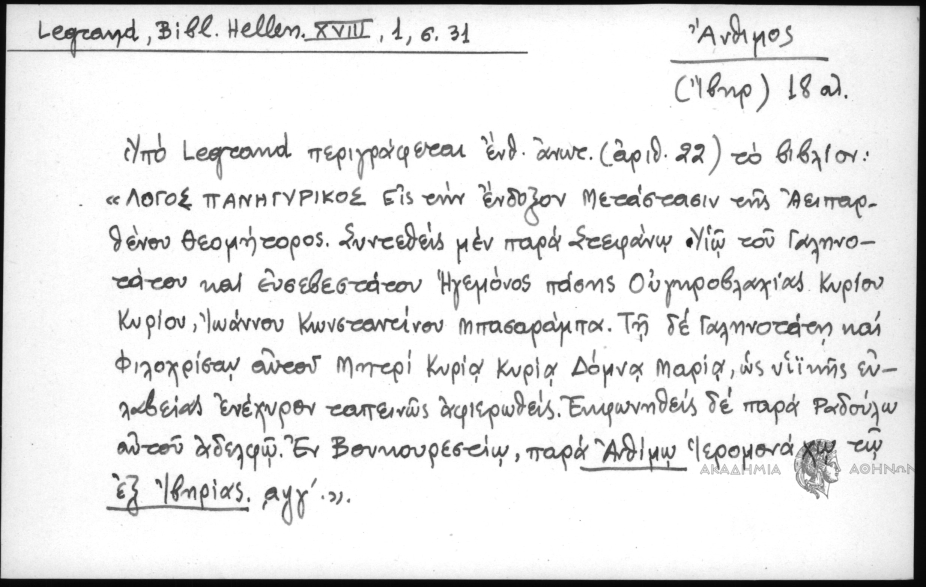 Legrand, Bibl. Hellen. XVIII, 1, σ. 31
Ἄνθιμος
(Ἴβηρ) 18 αἰ.
Ὑπό Legrand περιγράφεται ἐνθ. ἀνωτ. (ἀριθ. 22) τό βιβλίον:
«ΛΟΓΟΣ ΠΑΝΗΓΥΡΙΚΟΣ Εἰς τήν ἔνδοξον Μετάστασιν τῆς Ἀειπαρ-
θένου Θεομήτορος. Συντεθείς μέν παρά Στεφάνῳ Υἱῷ τοῦ Γαληνο-
τάτου καί εὐσεβεστάτου Ἡγεμόνος πάσης Οὐγκροβλαχίας Κυρίου
Κυρίου, Ἰωάννου Κωνσταντίνου Μπασαράμπα. Τῇ δέ Γαληνοτάτῃ καί
Φιλοχρίστῳ αὐτοῦ Μητρί Κυρίᾳ Κυρίᾳ Δόμνᾳ Μαρίᾳ, ὡς υἱϊκῆς εὐ-
λαβείας ἐνέχυρον ταπεινῶς ἀφιερωθείς. Ἐκφωνηθείς δέ παρά Ραδούλῳ
αὐτοῦ ἀδελφῷ. Ἐν Βουκουρεστίῳ, παρά Ἀνθίμῳ Ἱερομονάχῳ τῷ
ἐξ Ἰβηρίας. ͵αψγ΄.».
ΑΚΑΔΗΜΙΑ ΑΘΗΝΩΝ